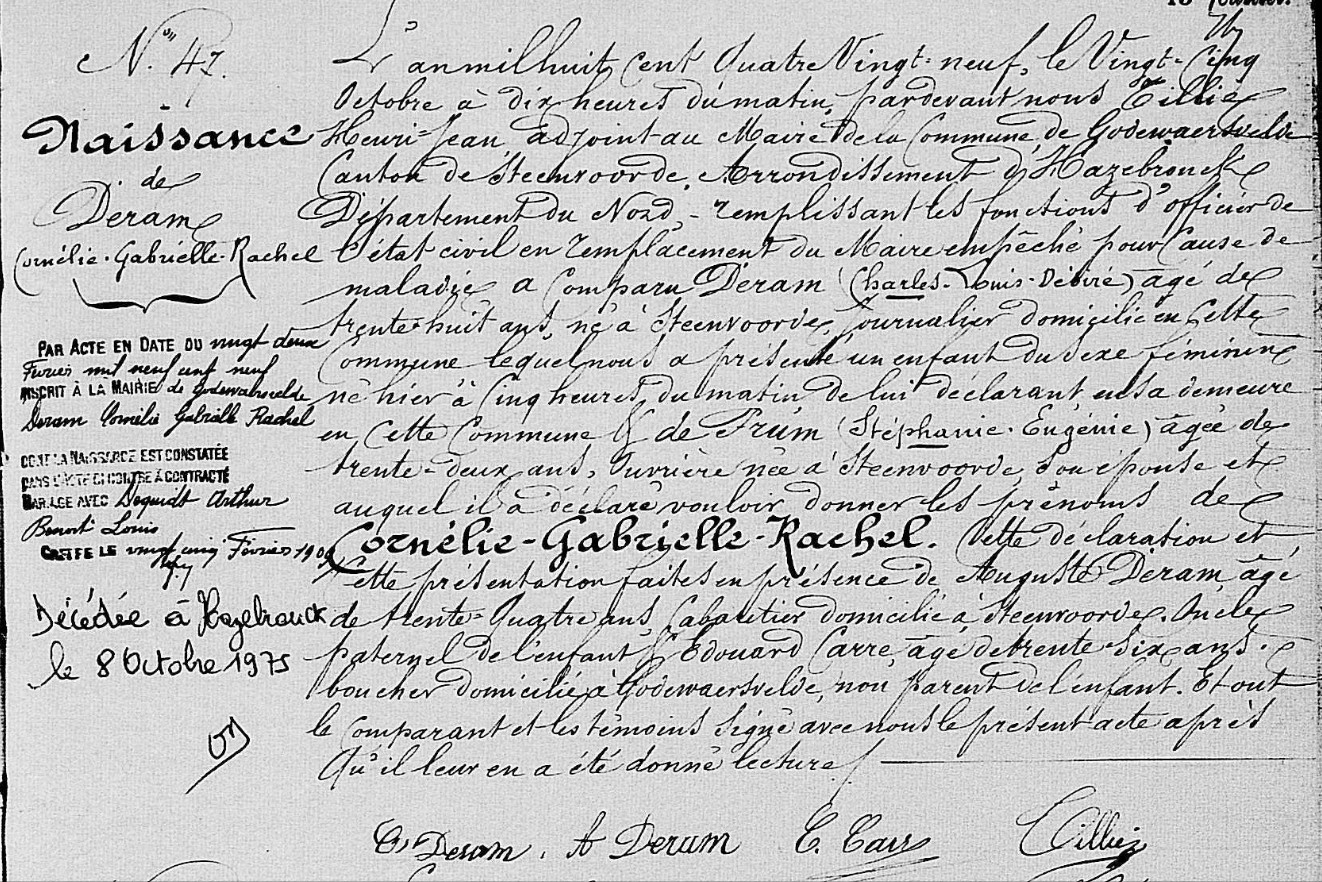 N.º 47.
Naissance
de
Deram
Cornélie-Gabrielle-Rachel
PAR ACTE EN DATE DU vingt deux
Février mil neuf cent neuf
INSCRIT À LA MAIRIE de Godewaersvelde
Deram Cornélie Gabrielle Rachel
DONT LA NAISSANCE EST CONSTATÉE
DANS L'ACTE CI-CONTRE A CONTRACTÉ
MARIAGE AVEC Dequidt Arthur
Benoit Louis
GREFFE LE vingt cinq Février 1909
Décédée à Hazebrouck
le 8 Octobre 1975
L'an mil huit cent Quatre Vingt-neuf, le Vingt-Cinq
Octobre à dix heures du matin, pardevant nous Tillie
Henri-Jean adjoint au Maire de la Commune, de Godewaersvelde
Canton de Steenvoorde, Arrondissement d'Hazebrouck
Département du Nord, - remplissant les fonctions d'officier de
l'état civil en remplacement du Maire empêché pour Cause de
maladie a Comparu Deram (Charles-Louis-Désiré) agé de
trente-huit ans, né à Steenvoorde, Journalier domicilié en Cette
Commune lequel nous a présenté un enfant du sexe féminin
né hier à Cinq heures, du matin de lui déclarant en sa demeure
en Cette Commune & de Frum (Stéphanie-Eugénie) agée de
trente-deux ans, Ouvrière née à Steenvoorde, Son épouse et
auquel il a déclaré vouloir donner les prénoms de
Cornélie-Gabrielle-Rachel. Cette déclaration et
Cette présentation faites en présence de Auguste Deram, agé
de trente-Quatre ans, Cabaretier domicilié à Steenvoorde. Oncle
paternel de l'enfant & Edouard Carre, agé de trente-six ans.
boucher domicilié à Godewaersvelde, non parent de l'enfant. Et ont
le Comparant et les témoins signé avec nous le présent acte après
Qu'il leur en a été donné lecture /
Deram. A Deram E. Carre Tillie